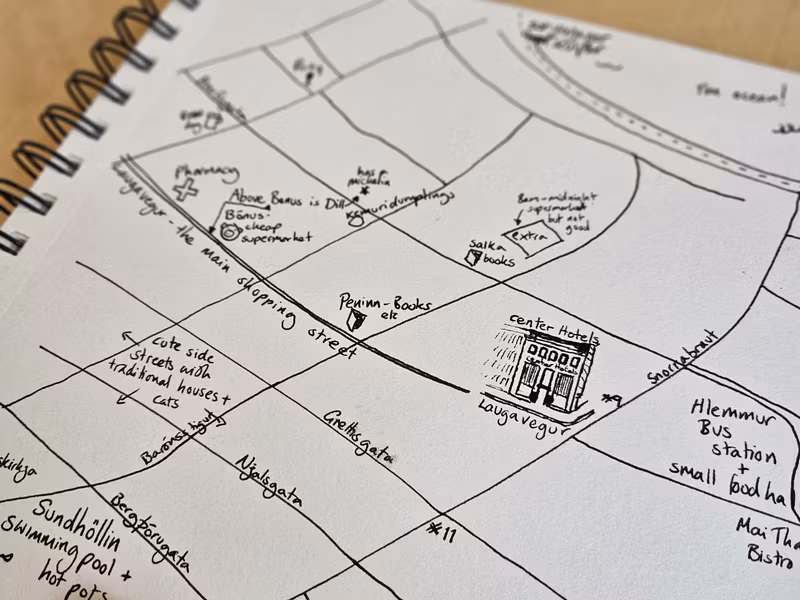 The ocean!
Pharmacy
has
michelin
*
Above Bónus is Dill
Bónus-
cheap
supermarket
Laugavegur - the main shopping street
8am-midnight
supermarket
but not
good
extra
salka
books
Peninn - Books
etc
center Hotels
center Hotels
Laugavegur
*9
Snorrabraut
cute side
streets with
traditional houses +
cats
Barónsstígut
Grettisgata
Njálsgata
Bergþórugata
skirkja
Sundhöllin
swimming pool +
hot pots
*11
Hlemmur
Bus
station
+
small food ha
Mai Tha
Bistro